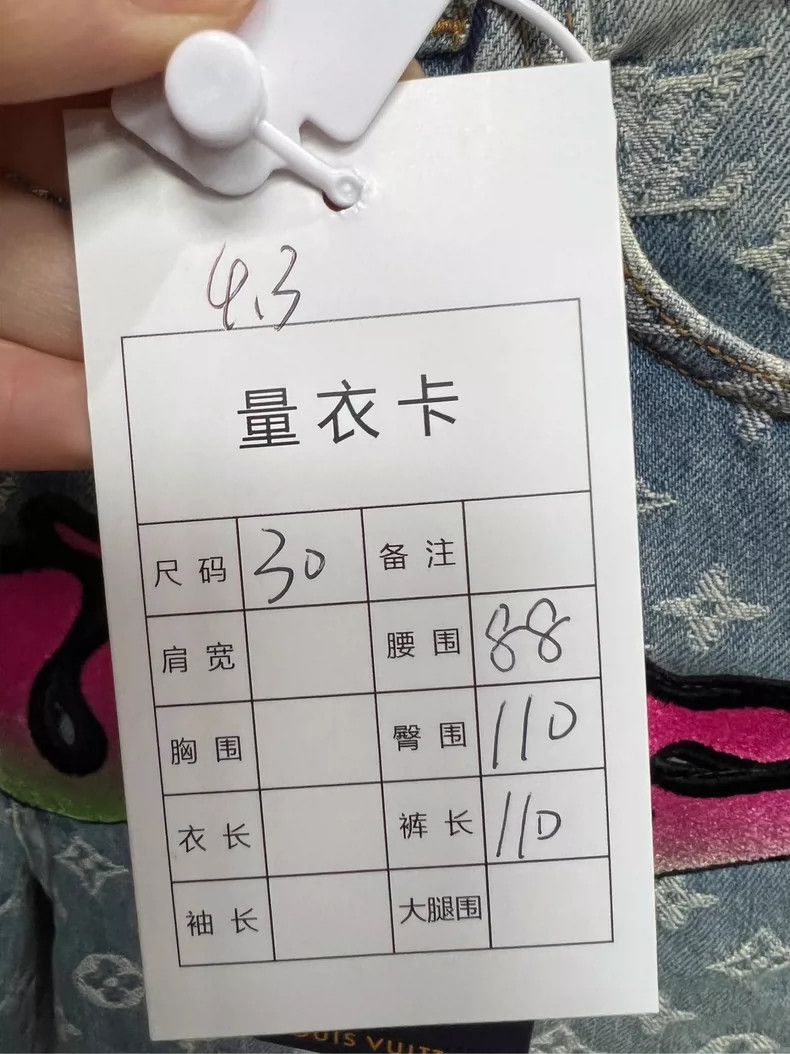 4.3
量衣卡
尺码 30 备注
肩宽 腰围 88
胸围 臀围 110
衣长 裤长 110
袖长 大腿围
LOUIS VUITT